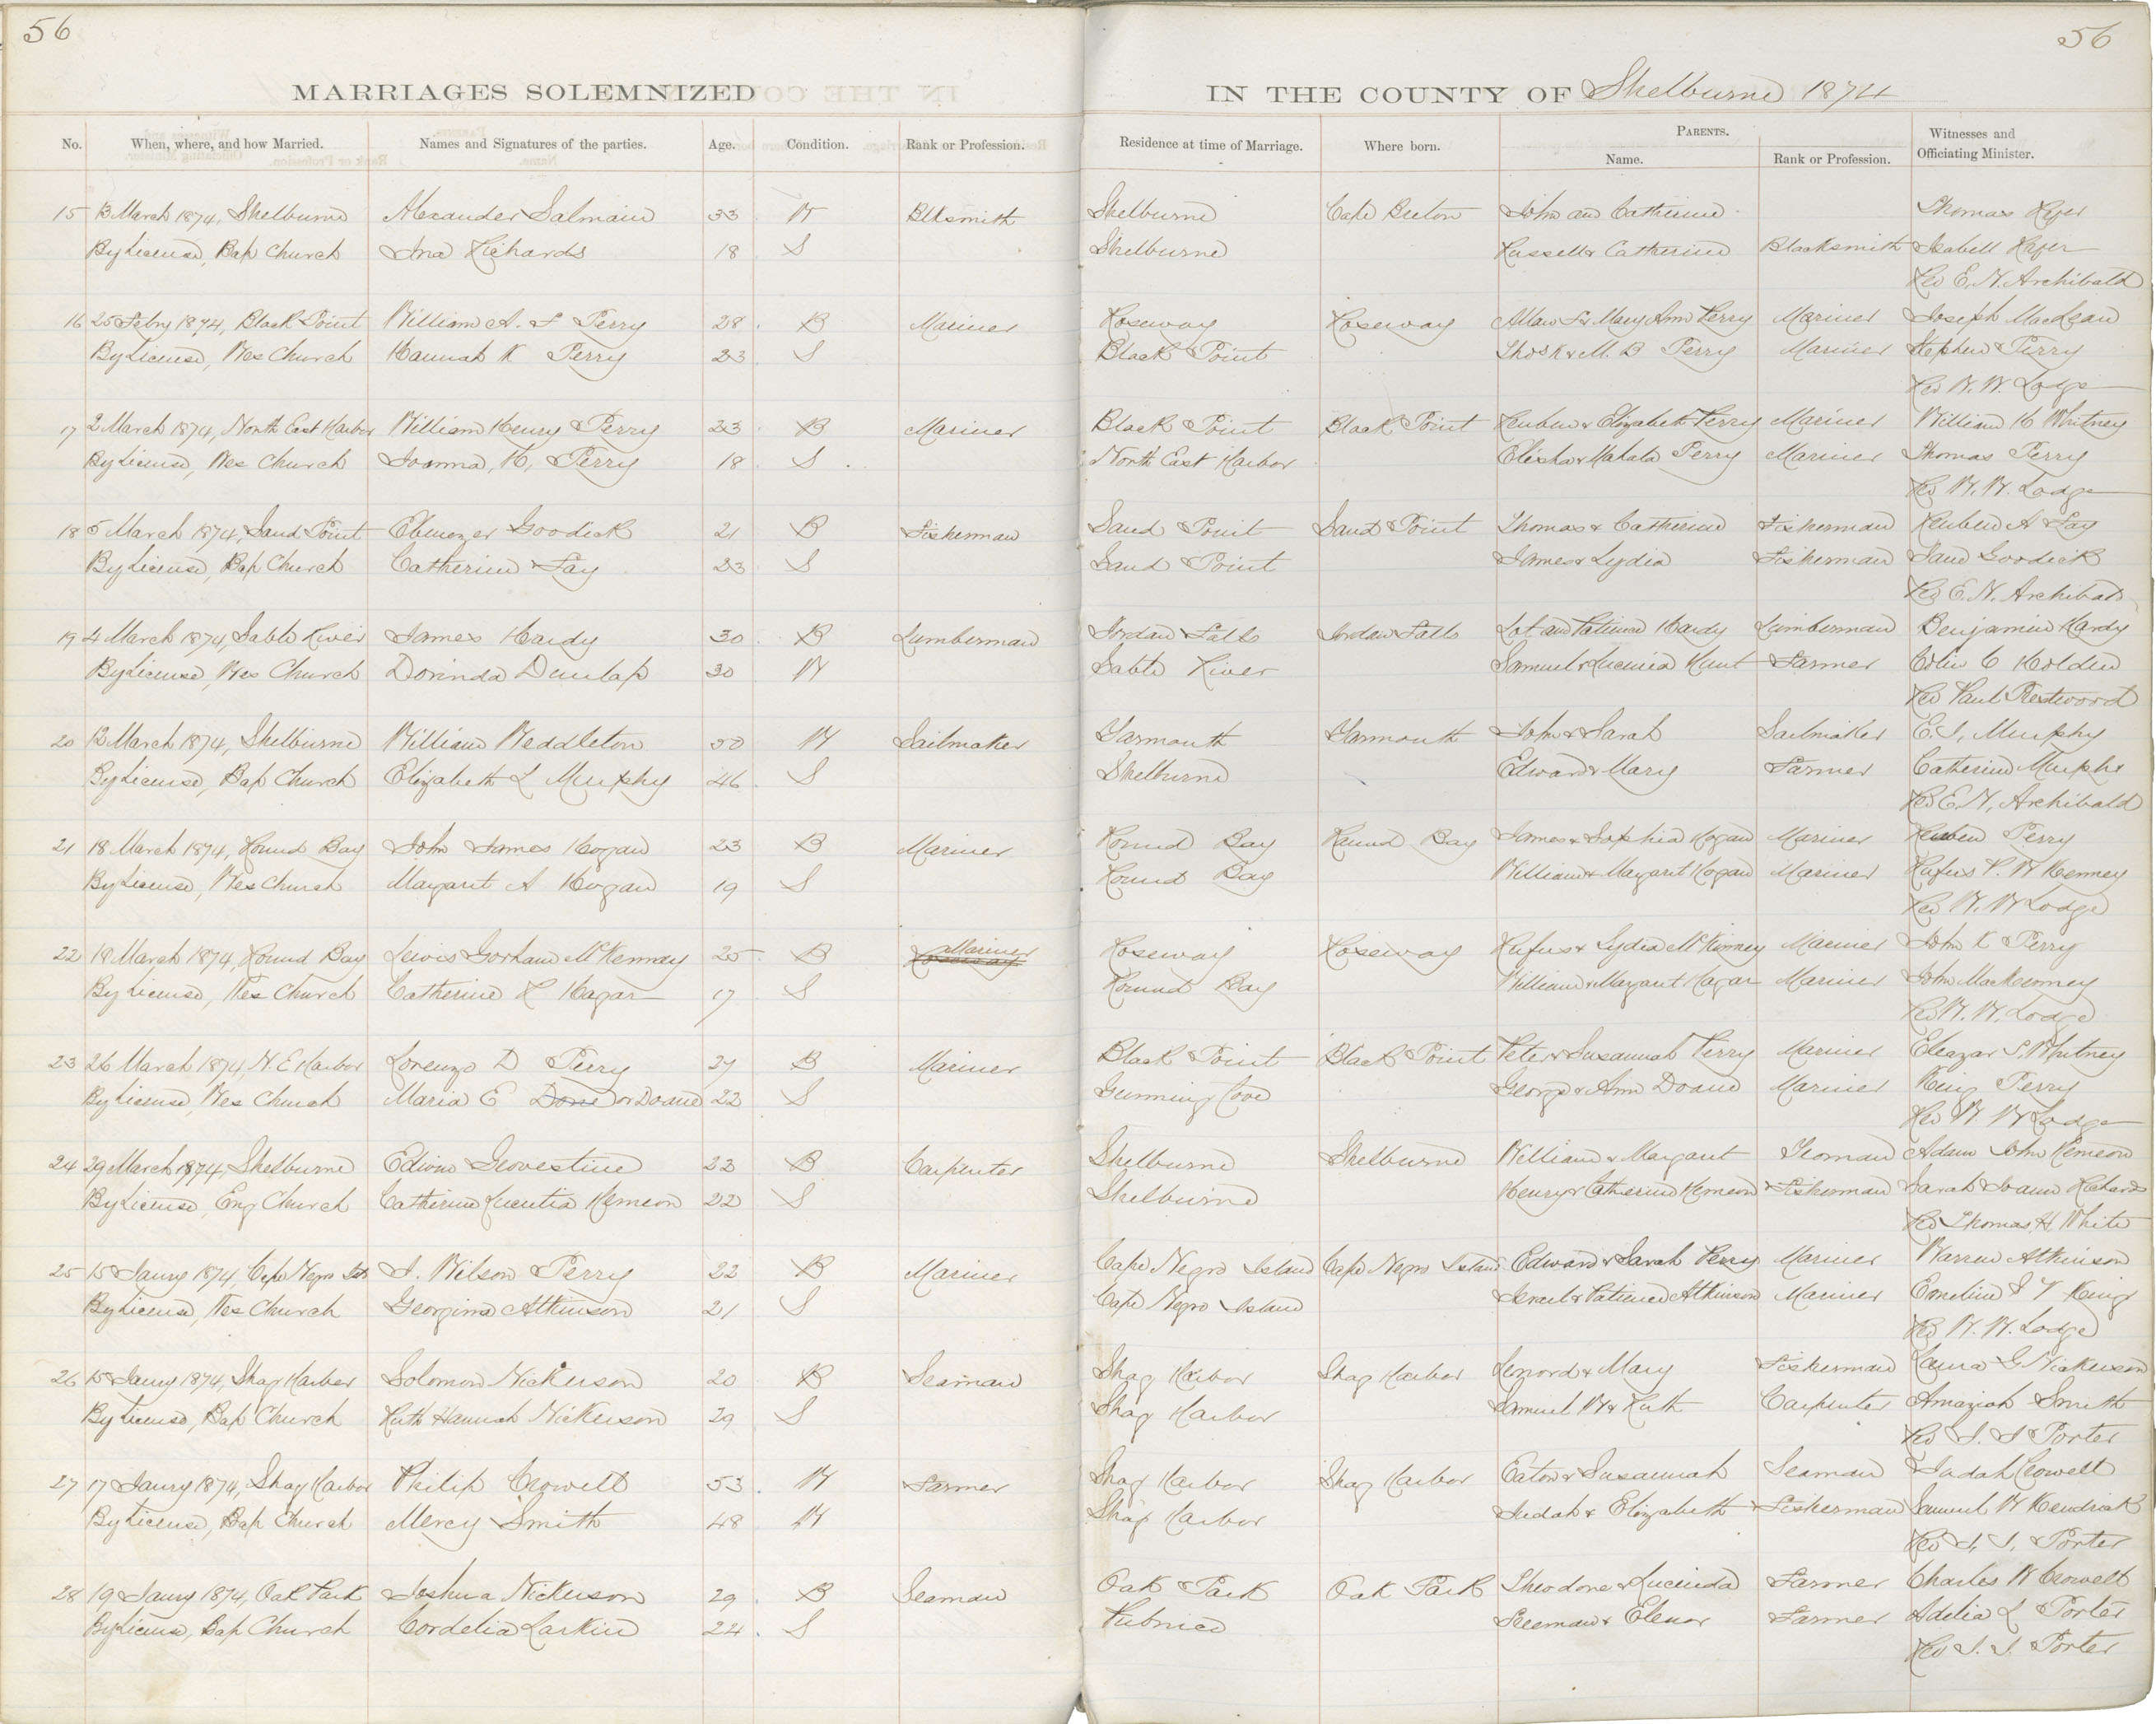 56
56
MARRIAGES SOLEMNIZED IN THE COUNTY OF Shelburne 1874
No. When, where, and how Married. Names and Signatures of the parties. Age. Condition. Rank or Profession. Residence at time of Marriage. Where born. PARENTS. Name. Rank or Profession. Witnesses and Officiating Minister.
15 13 March 1874, Shelburne Alexander Salmain 33 W Blksmith Shelburne Cape Breton John and Catherine Thomas Hyer
By License, Bap Church Ina Richards 18 S Shelburne Russell & Catherine Blacksmith Isabell Hyer
Rev E. N. Archibald
16 25 Febry 1874, Black Point William A. F Perry 28 B Mariner Roseway Roseway Allan F & Mary Ann Perry Mariner Joseph MacLean
By License, Wes Church Hannah K Perry 23 S Black Point Thos K & M. B Perry Mariner Stephen Perry
Rev W. W. Lodge
17 2 March 1874, North East Harbor William Henry Perry 23 B Mariner Black Point Black Point Reuben & Elizabeth Perry Mariner William H Whitney
By License, Wes Church Joanna, H, Perry 18 S North East Harbor Elisha & Mahala Perry Mariner Thomas Perry
Rev W. W. Lodge
18 5 March 1874, Sand Point Ebenezer Goodick 21 B Fisherman Sand Point Sand Point Thomas & Catherine Fisherman Reuben A Fay
By License, Bap Church Catherine Fay 23 S Sand Point James & Lydia Fisherman Jane Goodick
Rev E. N. Archibald
19 4 March 1874, Sable River James Hardy 30 B Lumberman Jordan Falls Jordan Falls Lot and Patience Hardy Lumberman Benjamin Hardy
By License, Wes Church Dorinda Dunlap 30 W Sable River Samuel & Lucinia Hunt Farmer Colin C Holden
Rev Paul Prestwood
20 12 March 1874, Shelburne William Weddleton 50 W Sailmaker Yarmouth Yarmouth John & Sarah Sailmaker E. J, Murphy
By License, Bap Church Elizabeth L Murphy 46 S Shelburne Edward & Mary Farmer Catherine Murphy
Rev E. N, Archibald
21 18 March 1874, Round Bay John James Hogan 23 B Mariner Round Bay Round Bay James & Sophia Hogan Mariner Reuben Perry
By License, Wes Church Margaret A Hogan 19 S Round Bay William & Margaret Hogan Mariner Rufus P. W Kenney
Rev W. W Lodge
22 18 March 1874, Round Bay Lewis Gorham McKennay 25 B Mariner Roseway Roseway Rufus & Lydia McKinney Mariner John K Perry
By License, Wes Church Catherine R Hagar 17 S Round Bay William & Margaret Hagar Mariner John Mackenney
Rev W. W. Lodge
23 26 March 1874, N. E Harbor Lorenzo D Perry 27 B Mariner Black Point Black Point Peter & Susannah Perry Mariner Eleazar S. Whitney
By License, Wes Church Maria E Done or Doane 22 S Gunning Cove George & Ann Doane Mariner King Perry
Rev W. W Lodge
24 29 March 1874, Shelburne Edwin Geovestine 23 B Carpenter Shelburne Shelburne William & Margaret Yeoman Adam John Hemeon
By License, Eng Church Catherine Lucretia Hemeon 22 S Shelburne Henry & Catherine Hemeon Fisherman Sarah Joann Richards
Rev Thomas H White
25 15 Jany 1874, Cape Negro Isd J. Wilson Perry 22 B Mariner Cape Negro Island Cape Negro Island Edward & Sarah Perry Mariner Warren Atkinson
By License, Wes Church Georgina Atkinson 21 S Cape Negro Island Israel & Patience Atkinson Mariner Emeline S V King
Rev W. W. Lodge
26 15 Jany 1874, Shag Harbor Solomon Nickerson 20 B Seaman Shag Harbor Shag Harbor Lenord & Mary Fisherman Laura G Nickerson
By License, Bap Church Ruth Hannah Nickerson 29 S Shag Harbor Samuel W & Ruth Carpenter Amaziah Smith
Rev J. J Porter
27 17 Jany 1874, Shag Harbor Philip Crowell 53 W Farmer Shag Harbor Shag Harbor Eaton & Susannah Seaman Judah Crowell
By License, Bap Church Mercy Smith 48 W Shag Harbor Judah & Elizabeth Fisherman Samuel W Kendrick
Rev J. J, Porter
28 19 Jany 1874, Oak Park Joshua Nickerson 29 B Seaman Oak Park Oak Park Theodore & Lucinda Farmer Charles W Crowell
By License, Bap Church Cordelia Larkin 24 S Pubnico Freeman & Elenor Farmer Adelia L Porter
Rev J. J. Porter